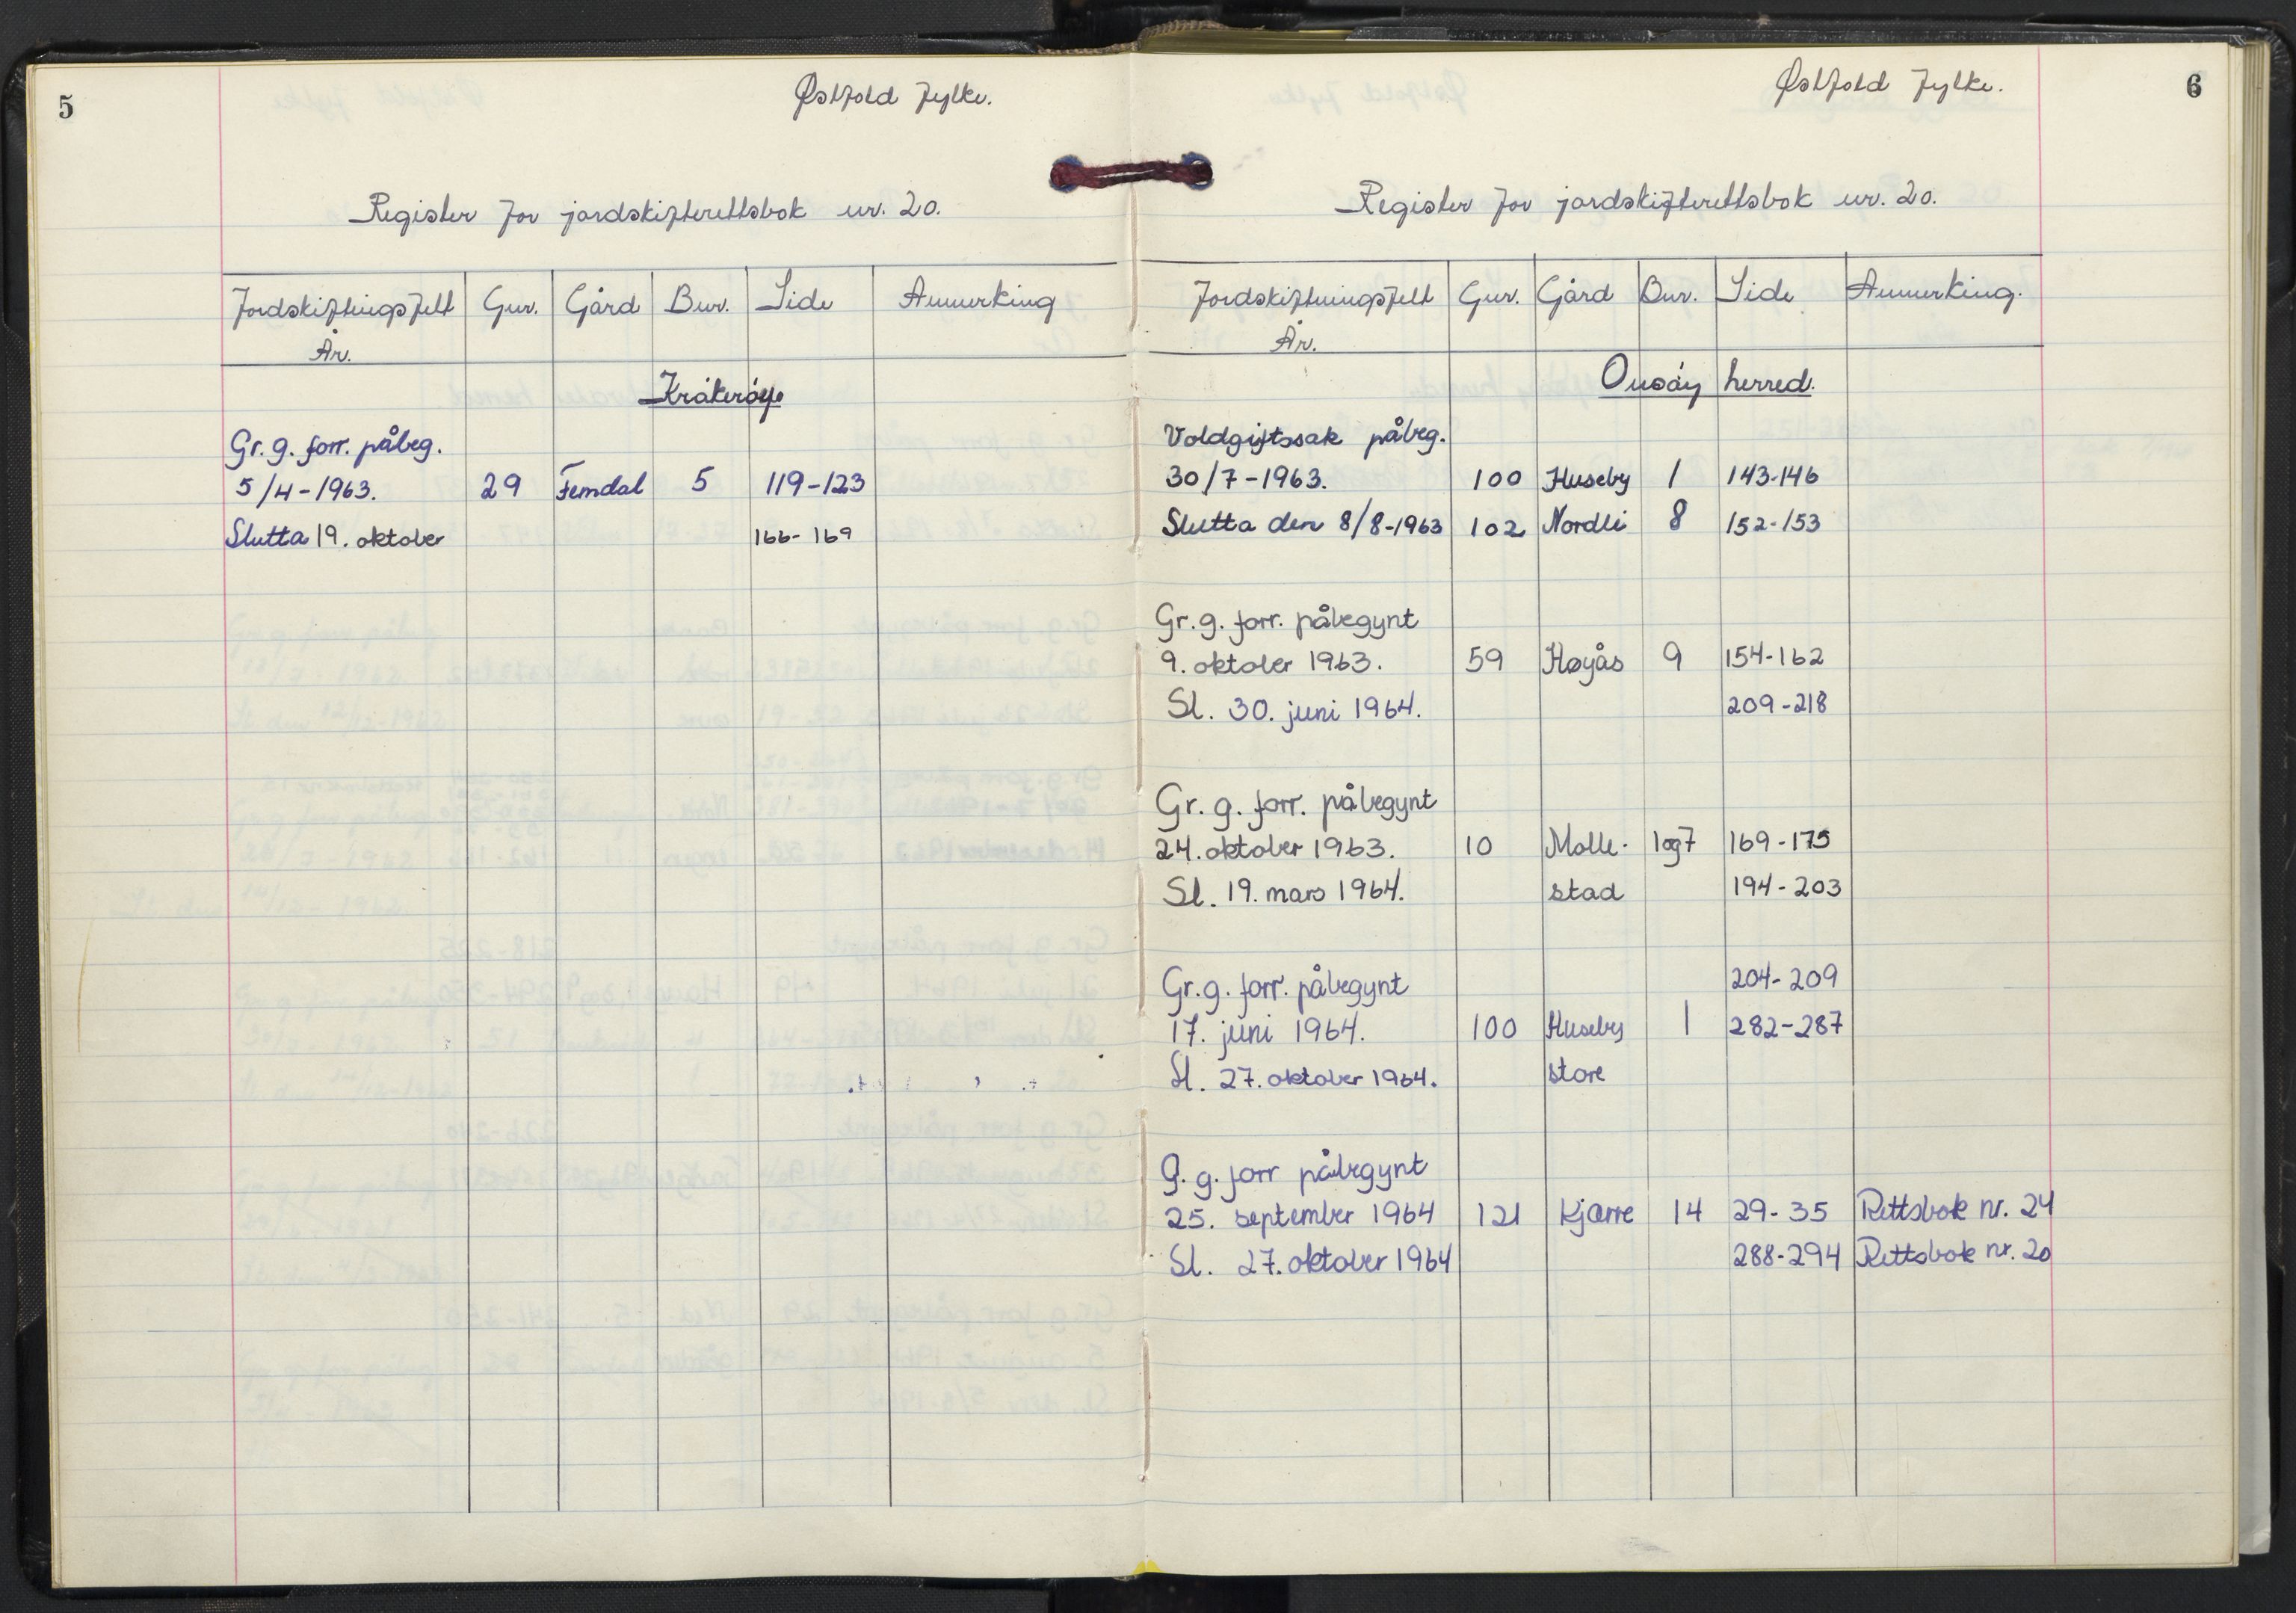 5
Østfold fylke.
Register for jordskifterettsbok nr. 20.
Jordskiftningsfelt Gnr. Gård Bnr. Side Anmerking
År.
Kråkerøy
Gr. g. forr. påbeg.
5/4-1963. 29 Femdal 5 119-123
Slutta 19. oktober 166-169
6
Østfold fylke.
Register for jordskifterettsbok nr. 20.
Jordskiftningsfelt Gnr. Gård Bnr. Side Anmerking.
År.
Onsøy herred.
Voldgiftssak påbeg.
30/7-1963. 100 Huseby 1 143-146
Slutta den 8/8-1963 102 Nordli 8 152-153
Gr. g. forr. påbegynt
9. oktober 1963. 59 Høyås 9 154-162
Sl. 30. juni 1964. 209-218
Gr. g. forr. påbegynt
24. oktober 1963. 10 Molle- 1og7 169-175
Sl. 19. mars 1964. stad 194-203
Gr. g. forr. påbegynt 204-209
17. juni 1964. 100 Huseby 1 282-287
Sl. 27. oktober 1964. store
G. g. forr påbegynt
25. september 1964 121 Kjærre 14 29-35 Rettsbok nr. 24
Sl. 27. oktober 1964 288-294 Rettsbok nr. 20